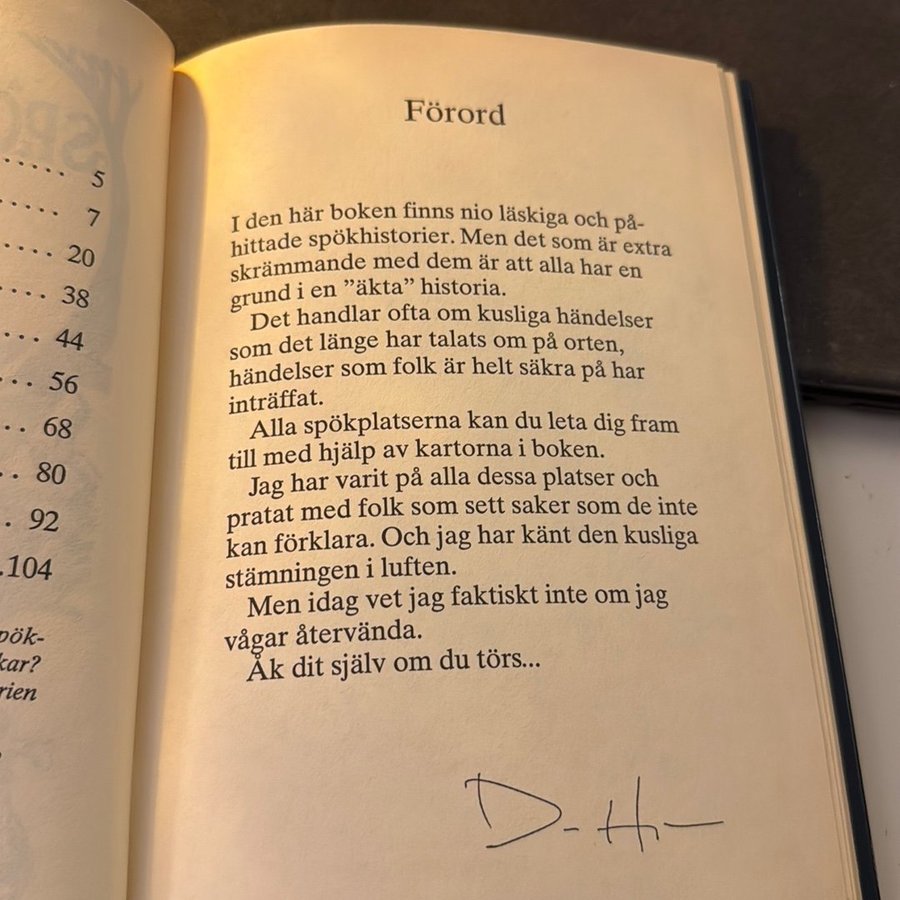 SPÖ
..... 5
..... 7
.... 20
.... 38
... 44
... 56
.. 68
.. 80
. 92
.104
pök-
kar?
rien
Förord
I den här boken finns nio läskiga och på-
hittade spökhistorier. Men det som är extra
skrämmande med dem är att alla har en
grund i en ”äkta” historia.
Det handlar ofta om kusliga händelser
som det länge har talats om på orten,
händelser som folk är helt säkra på har
inträffat.
Alla spökplatserna kan du leta dig fram
till med hjälp av kartorna i boken.
Jag har varit på alla dessa platser och
pratat med folk som sett saker som de inte
kan förklara. Och jag har känt den kusliga
stämningen i luften.
Men idag vet jag faktiskt inte om jag
vågar återvända.
Åk dit själv om du törs...